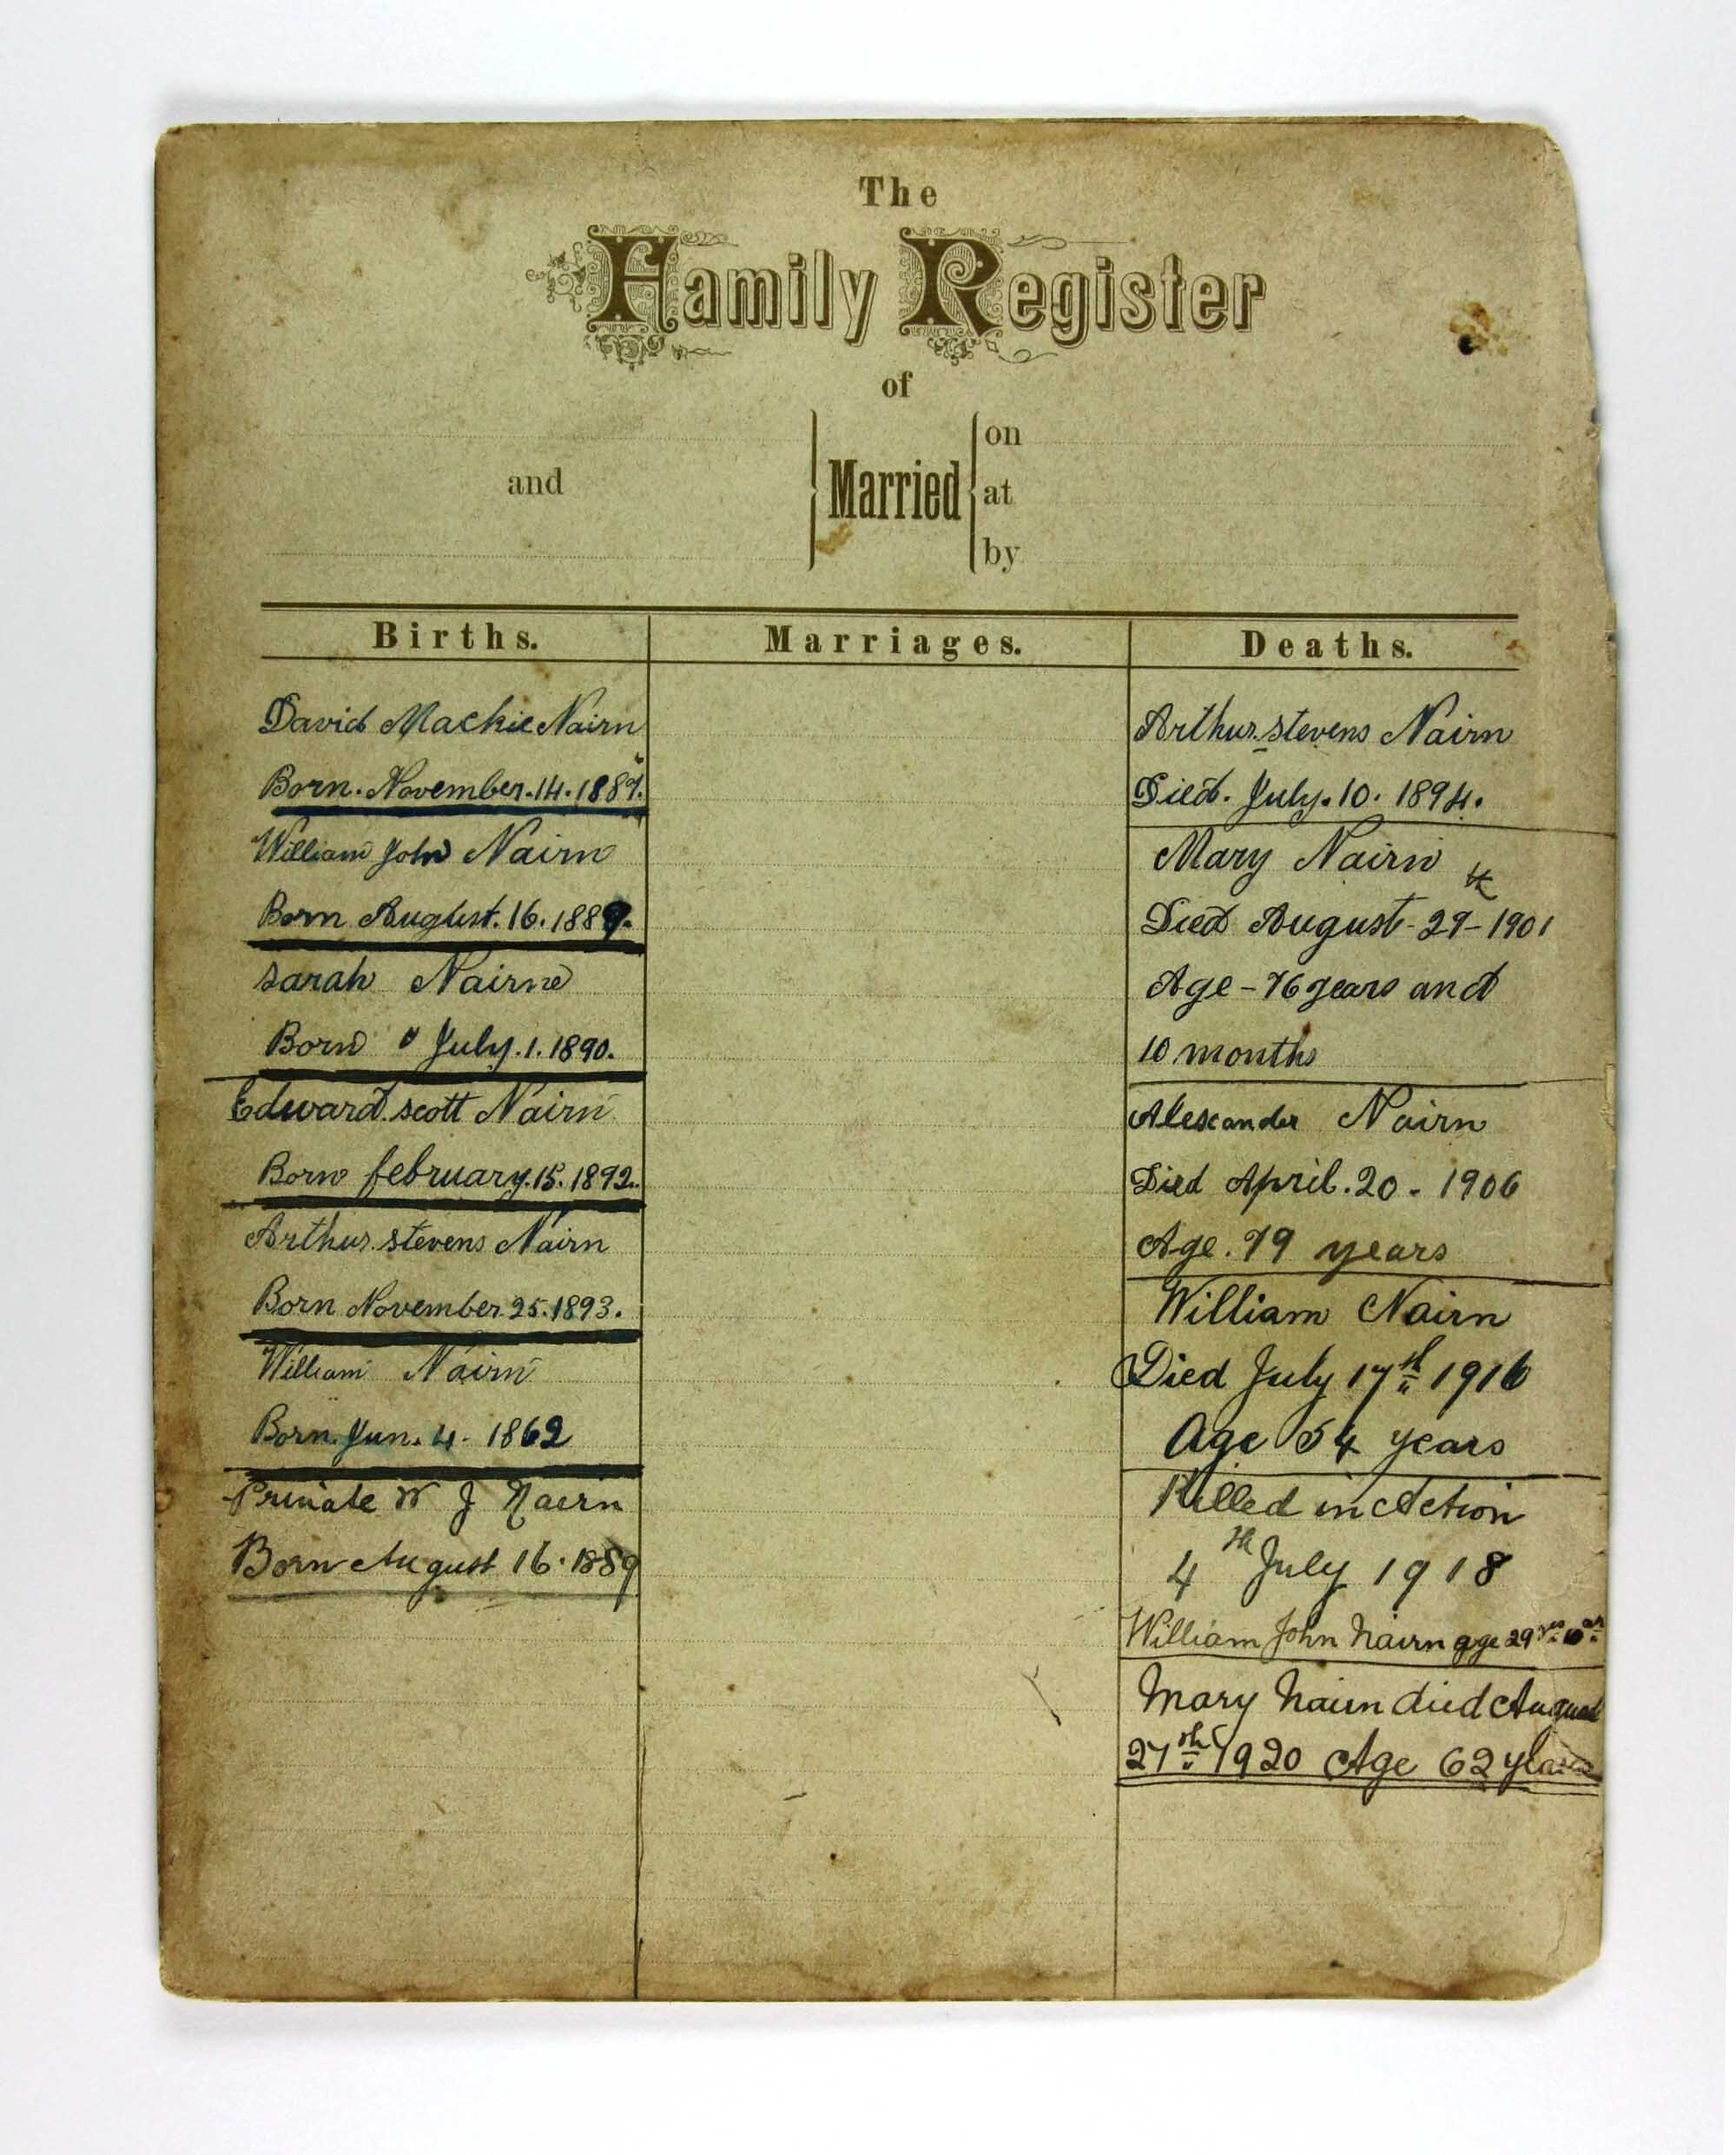 The
Family Register
of
and
Married
on
at
by
Births.
David Mackie Nairn
Born. November. 14. 1887.
William John Nairn
Born August. 16. 1889.
Sarah Nairne
Born July. 1. 1890.
Edward. scott Nairn
Born february. 15. 1892.
Arthur. stevens Nairn
Born November. 25. 1893.
William Nairn
Born. Jun. 4. 1862
Private W J Nairn
Born August 16. 1889
Marriages.
Deaths.
Arthur. stevens Nairn
Died. July. 10. 1894.
Mary Nairn
Died August - 29th - 1901
Age - 76 years and
10 months
Alexander Nairn
Died April. 20. 1906
Age. 79 years
William Nairn
Died July 17th 1916
Age 54 years
Killed in Action
4th July 1918
William John Nairn age 29 yrs 10
Mary Nairn died August
27th 1920 Age 62 years